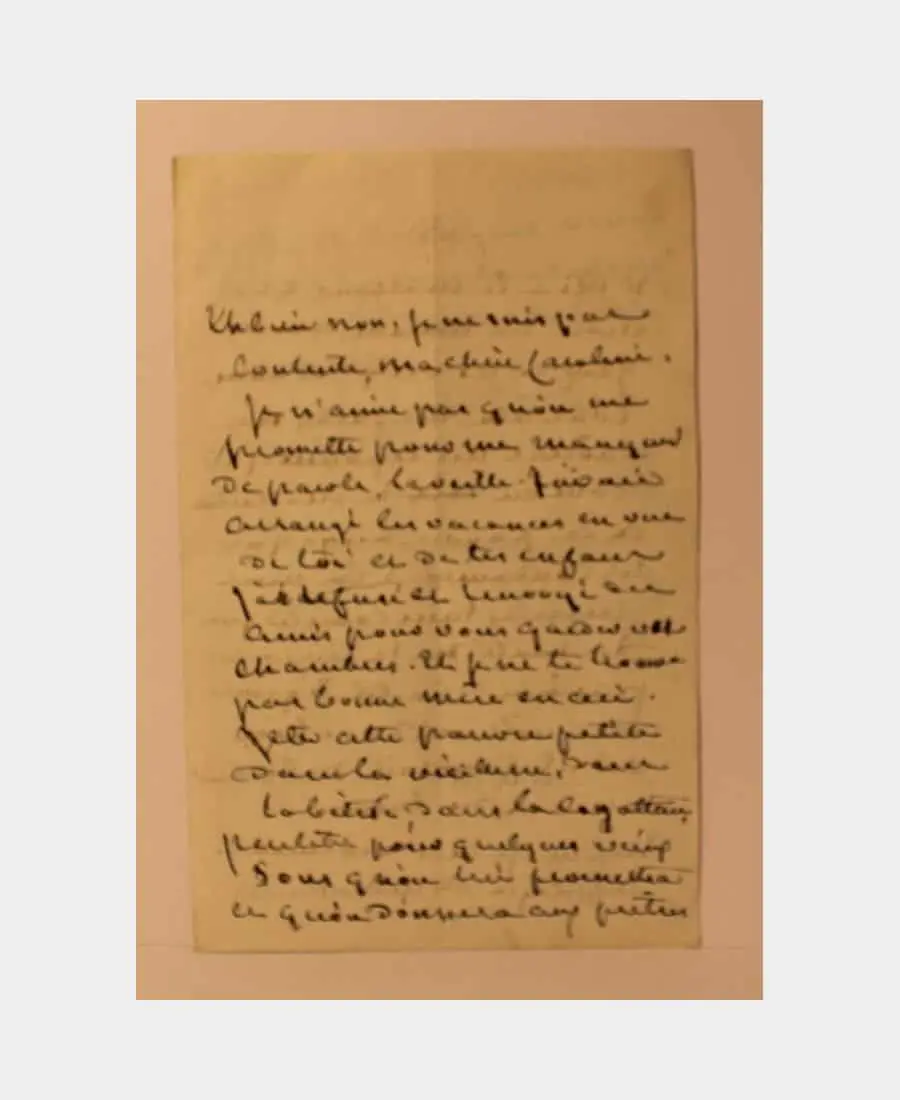 Eh bien non, je ne suis pas
contente, ma chère Caroline.
Je n'aime pas qu'on me
promette pour me manquer
de parole, la veille. J'avais
arrangé les vacances en vue
de toi et de tes enfans
J'ai refusé et renvoyé des
amis pour vous garder vos
chambres. Et je ne te trouve
pas bonne mère en ceci.
Jeter cette pauvre petite
dans la vieillesse, dans
la bêtise, dans la
peutêtre pour quelques vieux
Sous qu'on lui promettra
et qu'on donnera aux prêtres